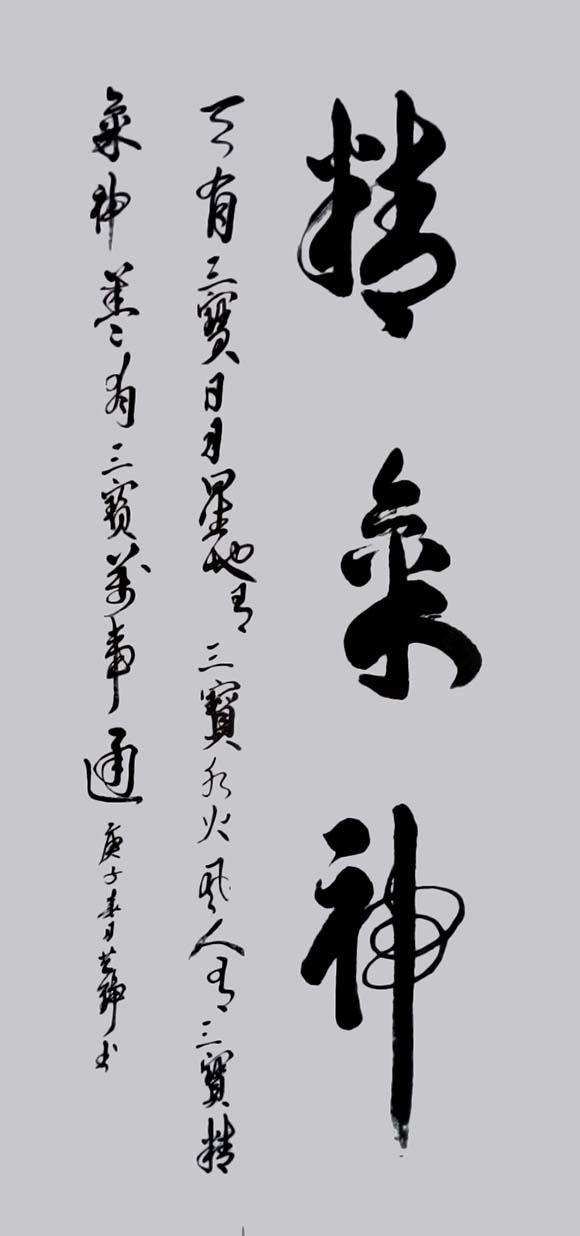 精氣神
天有三寶日月星地有三寶水火風人有三寶精
氣神善有三寶萬事通 庚子春日书